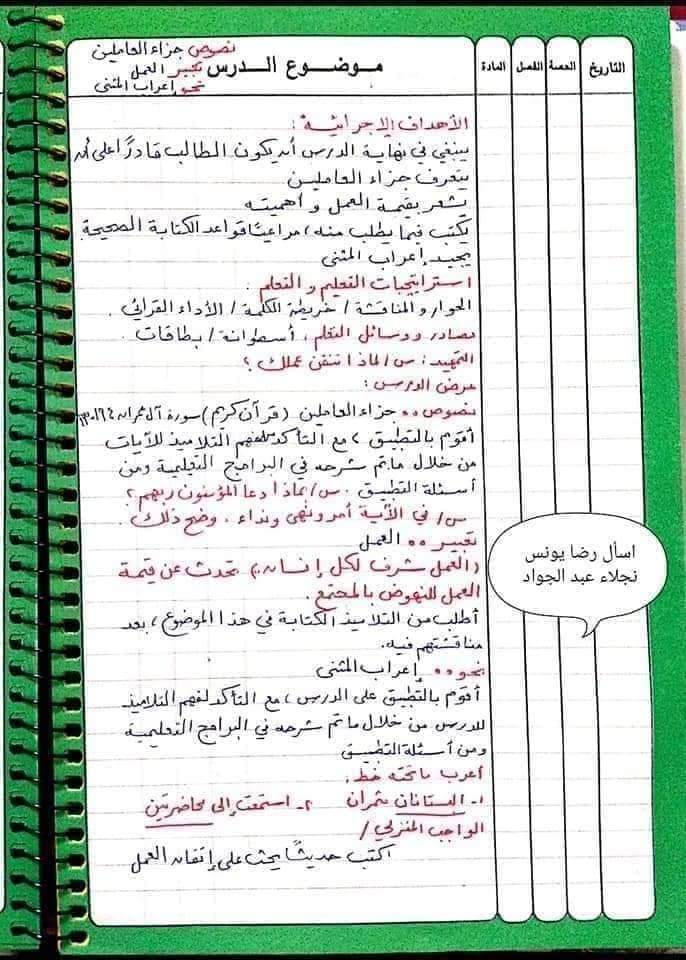 التاريخ
الحصة
الفصل
المادة
موضوع الدرس
نصوص جزاء العاملين
تعبير العمل
نحو إعراب المثنى
الأهداف الإجرائية :
ينبغي في نهاية الدرس أن يكون الطالب قادرًا على أن
يتعرف جزاء العاملين
يشعر بقيمة العمل وأهميته
يكتب فيما يطلب منه، مراعيًا قواعد الكتابة الصحيحة
يجيد إعراب المثنى
استراتيجيات التعليم والتعلم .
الحوار والمناقشة / خريطة الكلمة / الأداء القرائي .
مصادر ووسائل التعلم . أسطوانة / بطاقات .
التمهيد : س/ لماذا تتقن عملك ؟
عرض الدرس :
نصوص .. جزاء العاملين (قرآن كريم) سورة آل عمران
أقوم بالتطبيق، مع التأكد لفهم التلاميذ للآيات
من خلال ما تم شرحه في البرامج التعليمية ومن
أسئلة التطبيق . س/ بماذا دعا المؤمنون ربهم ؟
س/ في الآية أمر ونهى ونداء . وضح ذلك
تعبير .. العمل
(العمل شرف لكل إنسان ..) تحدث عن قيمة
العمل للنهوض بالمجتمع .
أطلب من التلاميذ الكتابة في هذا الموضوع، بعد
مناقشتهم فيه.
نحو .. إعراب المثنى
أقوم بالتطبيق على الدرس، مع التأكد لفهم التلاميذ
للدرس من خلال ما تم شرحه في البرامج التعليمية
ومن أسئلة التطبيق
أعرب ما تحته خط.
١- البستانان مثمران ٢- استمعت إلى محاضرتين
الواجب المنزلي /
اكتب حديثًا يحث على إتقان العمل
اسأل رضا يونس
نجلاء عبد الجواد